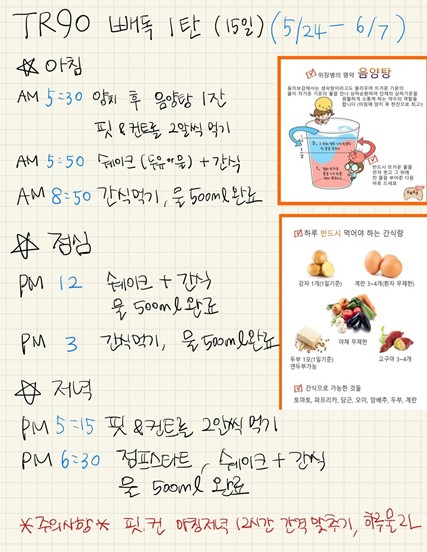 TR90 빼독 1탄 (15일) (5/24 - 6/7)
☆ 아침
AM 5:30 양치 후 음양탕 1잔
핏&컨트롤 2알씩 먹기
AM 5:50 쉐이크 (두유or물) + 간식
AM 8:50 간식먹기, 물 500ml 완료
☆ 점심
PM 12 쉐이크 + 간식
물 500ml 완료
PM 3 간식먹기, 물 500ml 완료
☆ 저녁
PM 5:15 핏&컨트롤 2알씩 먹기
PM 6:30 점프스타트, 쉐이크 + 간식
물 500ml 완료
*주의사항* 핏.컨 아침저녁 12시간 간격 맞추기, 하루물 2L
위장병의 명약 음양탕
동의보감에서는 생숙탕이라고도 불리우며 뜨거운 기운의
물이 차가운 기운의 물을 만나 상하순환하여 인체의 상하기운을
원활하게 소통케 하는 약수의 역할을
합니다 (아침에 양치 후 한잔으로 최고)
반드시 뜨거운 물을
먼저 붓고 그 위에
찬 물을 부어준 다음
바로 드세요
하루 반드시 먹어야 하는 간식량
감자 1개(1일기준)
계란 3~4개(흰자 무제한)
야채 무제한
두부 1모(1일기준)
연두부가능
고구마 3~4개
간식으로 가능한 것들
토마토, 파프리카, 당근, 오이, 양배추, 두부, 계란